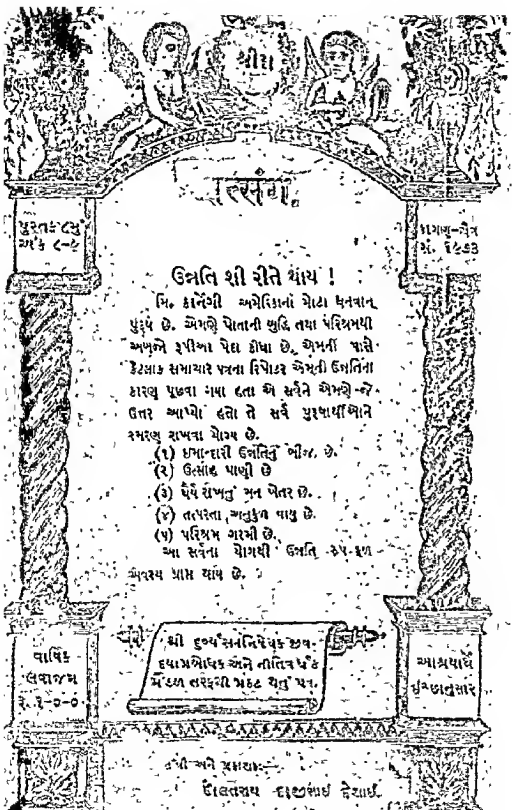 શ્રીરા
સત્સંગ.
પુસ્તક ૮મું
અંક ૮-૯
ફાગણ-ચૈત્ર
સં. ૧૯૭૩
ઉન્નતિ શી રીતે થાય !
મિ. કાર્નેગી અમેરિકાના મોટા ધનવાન્
પુરૂષ છે. એમણે પોતાની બુદ્ધિ તથા પરિશ્રમથી
અબજો રૂપીઆ પેદા કીધા છે. એમની પાસે
કેટલાક સમાચાર પત્રના રિપોર્ટર એમની ઉન્નતિના
કારણ પૂછવા ગયા હતા એ સર્વને એમણે જે
ઉત્તર આપ્યો હતો તે સર્વ પુરૂષાર્થીઓને
સ્મરણ રાખવા યોગ્ય છે.
(૧) ઇમાન્દારી ઉન્નતિનું બીજ છે.
(૨) ઉત્સાહ પાણી છે
(૩) ધૈર્ય રાખનું મન ખેતર છે.
(૪) તત્પરતા અનુકુળ વાયુ છે.
(૫) પરિશ્રમ ગરમી છે.
આ સર્વના યોગથી ઉન્નતિ-રૂપ-ફળ
અવશ્ય પ્રાપ્ત થાય છે.
શ્રી દુર્વ્યસનનિષેધક જીવ-
દયાપ્રબોધક અને નીતિવર્ધક
મંડળ તરફથી પ્રકટ થતું પત્ર.
વાર્ષિક
લવાજમ
રૂ. ૧-૦-૦
આશ્રયદાતા
ઇચ્છાનુસાર
તંત્રી અને પ્રકાશક:—
દોલતરાય દાજીભાઈ દેસાઈ.